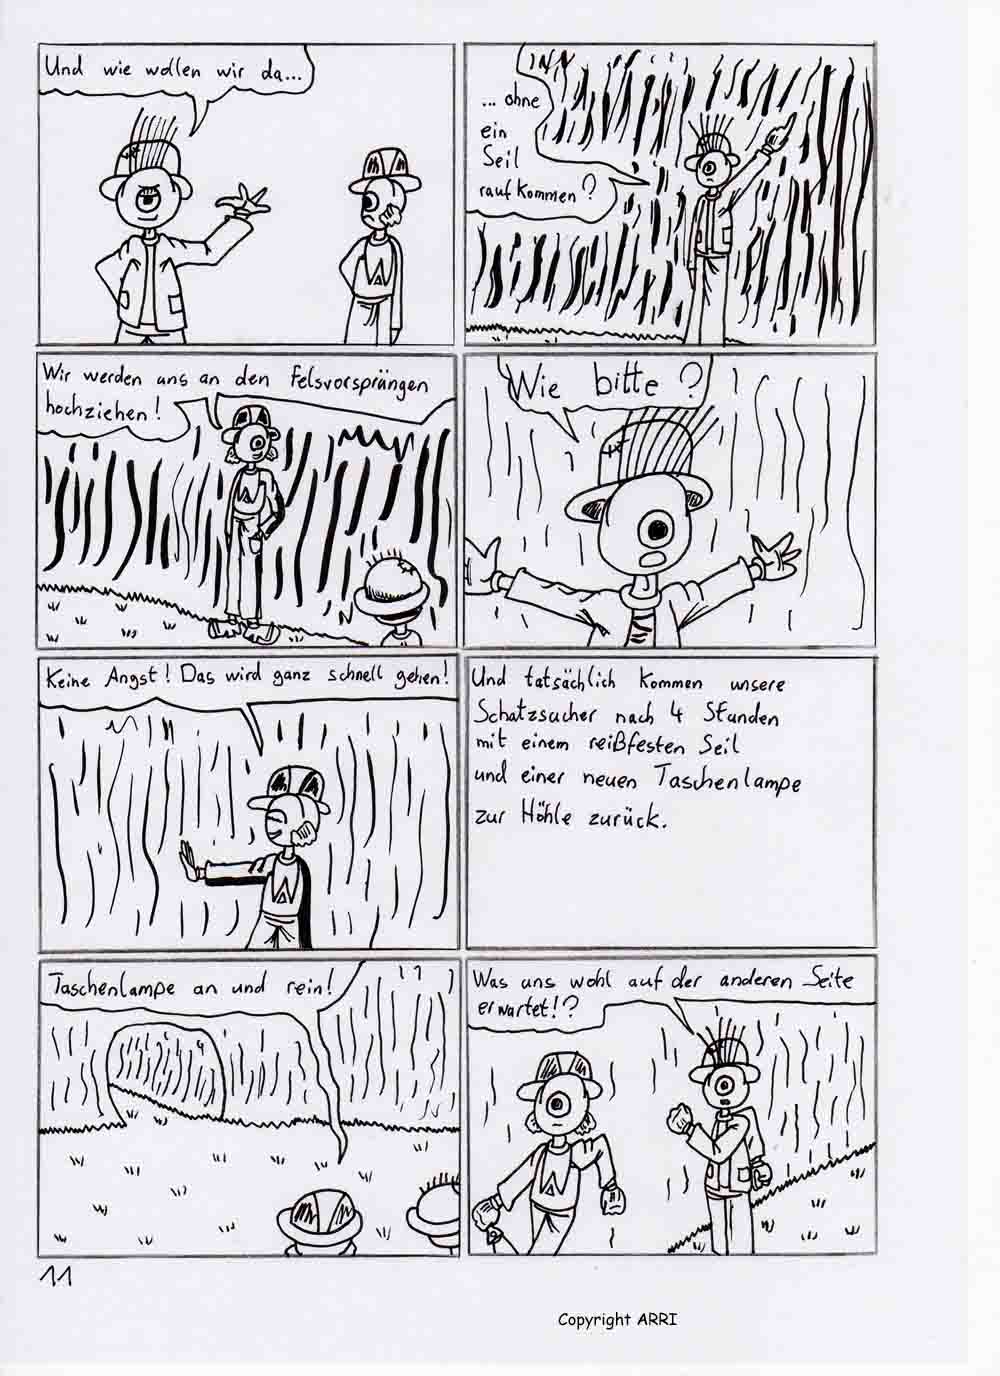 Und wie wollen wir da...
... ohne
ein
Seil
rauf kommen?
Wir werden uns an den Felsvorsprüngen
hochziehen!
Wie bitte?
Keine Angst! Das wird ganz schnell gehen!
Und tatsächlich kommen unsere
Schatzsucher nach 4 Stunden
mit einem reißfesten Seil
und einer neuen Taschenlampe
zur Höhle zurück.
Taschenlampe an und rein!
Was uns wohl auf der anderen Seite
erwartet!?
11
Copyright ARRI